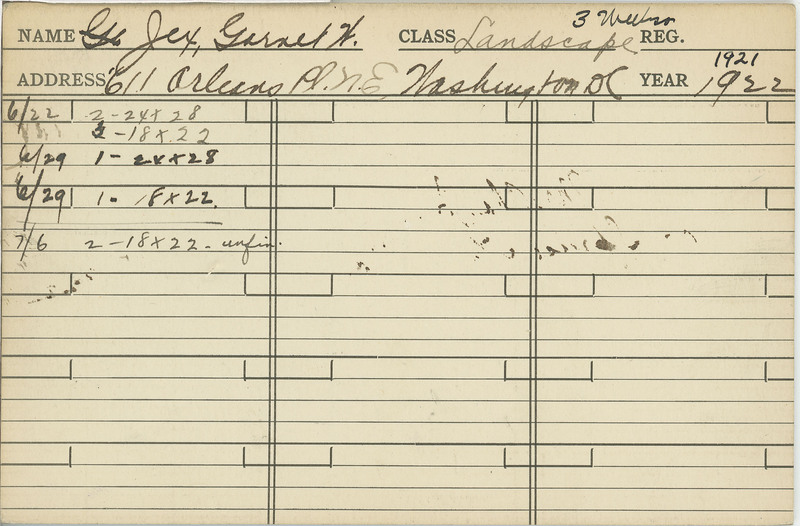 NAME Jex, Garnet W. CLASS Landscape 3 Weeks REG.
ADDRESS 611 Orleans Pl. N.E Washington DC YEAR 1921 1922
6/22 2-24x28
2-18x22
6/29 1-24x28
6/29 1-18x22
7/6 2-18x22-unfin.